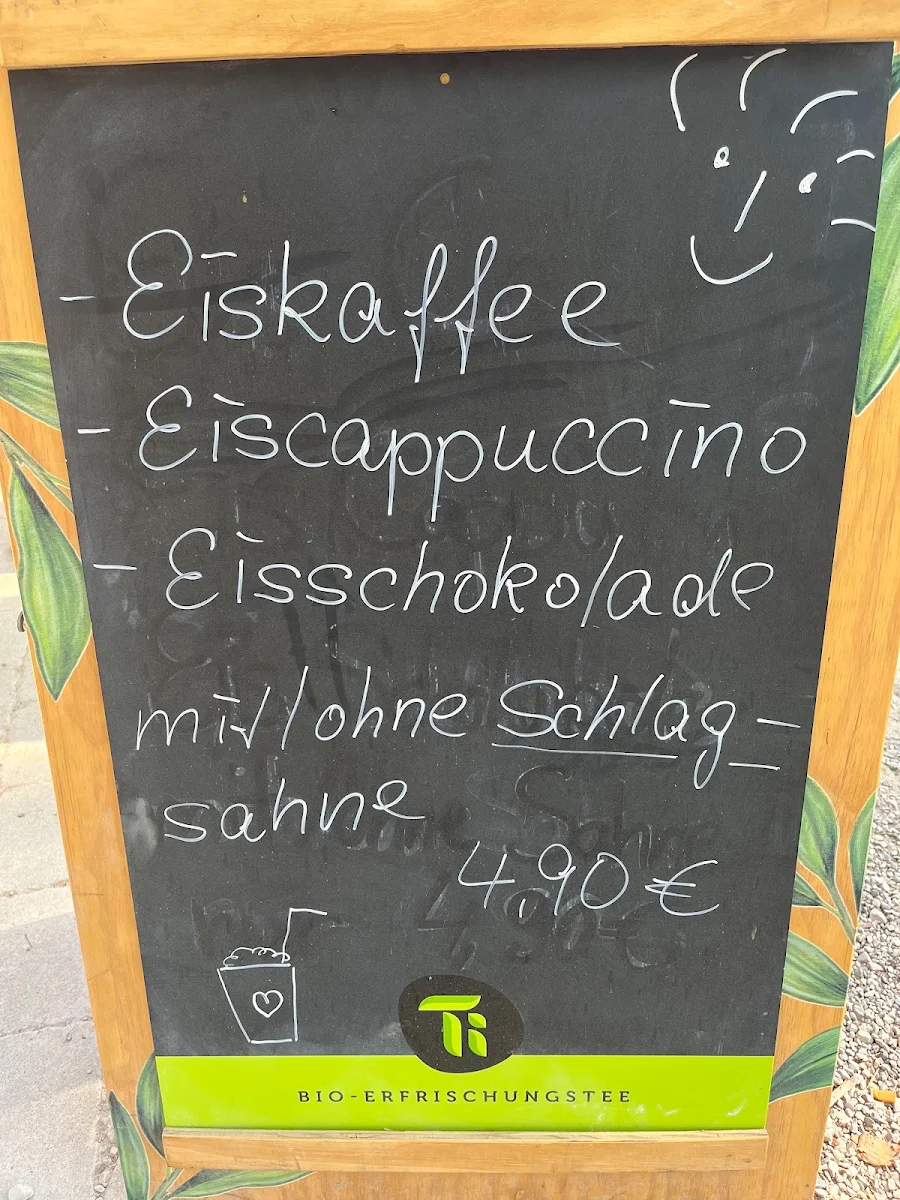 - Eiskaffee
- Eiscappuccino
- Eisschokolade
mit/ohne Schlag=
sahne
4,90 €
Ti
BIO-ERFRISCHUNGSTEE